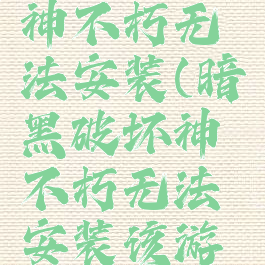 神不朽无
法安装(暗
黑破坏神
不朽无法
安装该游